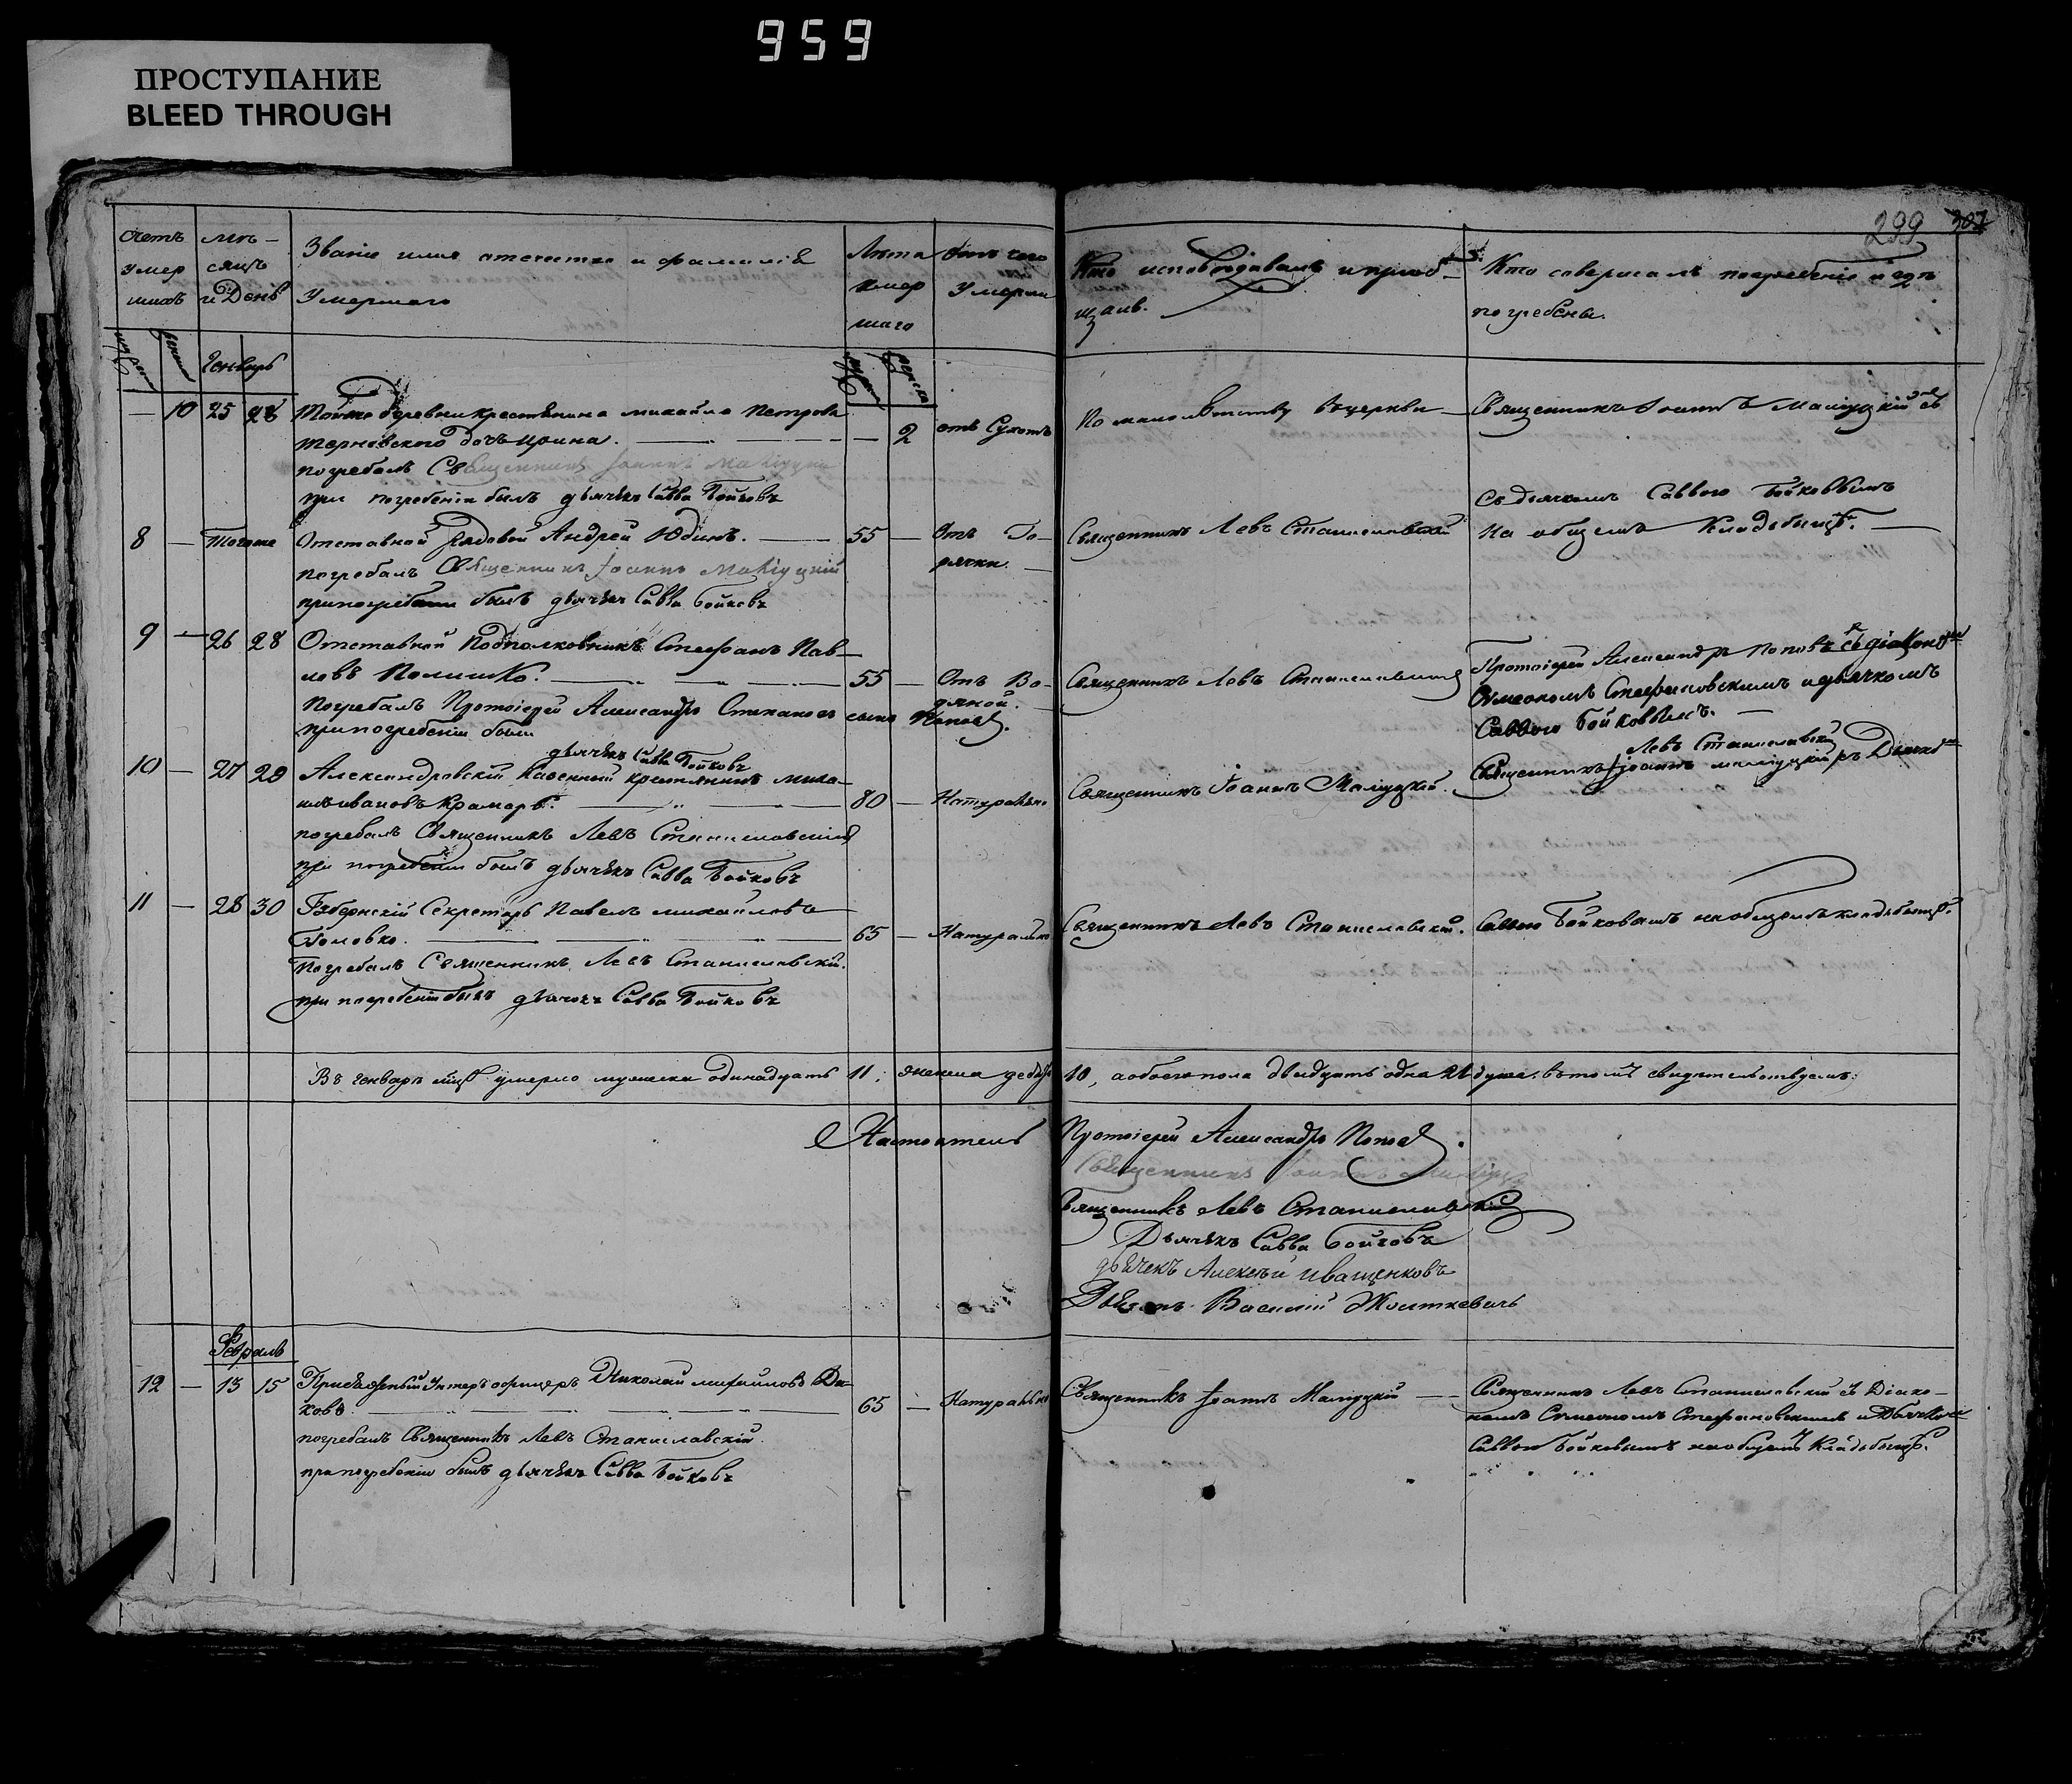 959
ПРОСТУПАНИЕ
BLEED THROUGH
299 307
Счетъ умер шихъ
мѣ- сяцъ и День
Званіе имя отечество и фамилія
Умершаго
Лѣта умер шаго
Отъ чего Умерли
Кто исповѣдывалъ и пріоб-
щалъ.
Кто совершалъ погребеніе и гдѣ
погребены.
Генварь
10 25 28 Тойже деревни крестьянина михайла петрова
терновского дочь ирина. 2 отъ Сухотъ
По малолѣтству въ церкви
Священникъ Іоаннъ Малицкій съ
погребалъ Священникъ Іоаннъ Малицкій
при погребеніи былъ дьячекъ Савва Бойковъ
Съ дьячкомъ Саввою Бойковымъ
на общемъ Кладьбищѣ.
8 Тогоже Отставной рядовой Андрей Юдинъ. 55 Отъ Го-
рячки.
Священникъ Левъ Станиславскій
погребалъ Священникъ Іоаннъ Малицкій
при погребеніи былъ дьячекъ Савва Бойковъ
9 26 28 Отставной Подполковникъ Стефанъ Пав-
ловъ Полишко. 55 Отъ Во-
дяной.
Священникъ Левъ Станиславскій
Протоіерей Александръ Поповъ съ діакономъ
Симеономъ Стефановскимъ и дьячкомъ
Саввою Бойковымъ.
Погребалъ Протоіерей Александръ Стеканов сынъ Поповъ.
при погребеніи были
дьячекъ Савва Бойковъ
10 27 29 Александровскій Казенный крестьянинъ миха-
илъ ивановъ Крамарь. 80 Натурально
Священникъ Іоаннъ Малицкій.
Левъ Станиславскій
Священникъ Іоаннъ малицкій съ Дьячкомъ
погребалъ Священникъ Левъ Станиславскій
при погребеніи былъ дьячекъ Савва Бойковъ
11 28 30 Губернскій Секретарь Павелъ михайловъ
Головко. 65 Натурально
Священникъ Левъ Станиславскій.
Саввою Бойковымъ на общемъ кладьбищѣ.
Погребалъ Священникъ Левъ Станиславскій.
при погребеніи былъ дьячекъ Савва Бойковъ
Въ генварѣ мцѣ умерло мужеска одинадцать 11; женска десять 10, а обоего пола двадцать одна 21 душа. въ томъ свидѣтельствуемъ:
Настоятель Протоіерей Александръ Поповъ.
Священникъ Іоаннъ Малицкій
Священникъ Левъ Станиславскій
Дьячекъ Савва Бойковъ
дьячекъ Алексѣй иващенковъ
Василій Жолткевичь
Февраль
12 13 15 Присяжный Унтеръ офицеръ Николай михайловъ Ди-
ковъ 65 Натурально
Священникъ Іоаннъ Малицкій
Священникъ Левъ Станиславскій съ Діако-
номъ Симеономъ Стефановскимъ и дьячкомъ
Саввою Бойковымъ на общемъ Кладьбищѣ.
погребалъ Священникъ Левъ Станиславскій.
при погребеніи былъ дьячекъ Савва Бойковъ